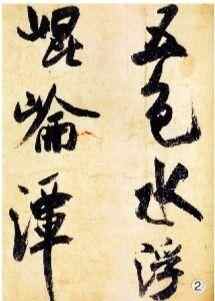 五色水浮
崐崘渾
②